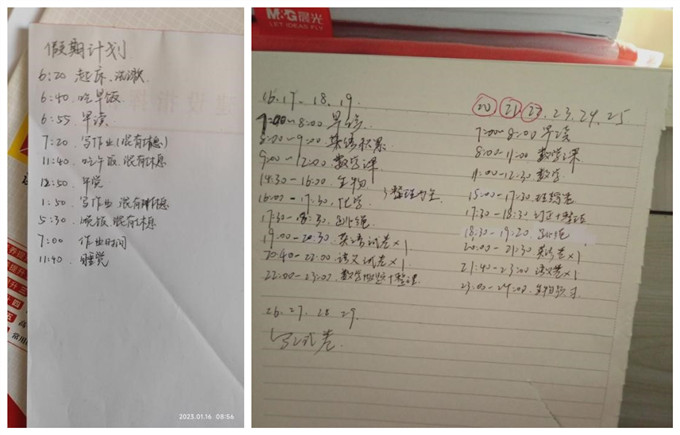 假期计划
6:20 起床、洗漱
6:40 吃早饭
6:55 早读
7:20 写作业(很有休息)
11:40 吃午饭 很有休息
12:50 午觉
1:50 写作业 很有休息
5:30 晚饭 很有休息
7:00 作业时间
11:40 睡觉
2023.01.16 08:56
M&G 晨光
LET IDEAS FLY
16.17.18.19.
7:00-8:00 早读
8:00-9:00 英语积累
9:00-12:00 数学课
14:30-16:00 生物
16:00-17:30 化学
整理为主
17:30-18:30 跳绳
19:00-20:30 英语试卷×1
20:40-22:00 语文试卷×1
22:00-23:00 数学+整理
26.27.28.29.
写试卷
20 21 22.23.24.25
7:00-8:00 早读
8:00-11:00 数学课
11:00-12:30 数学
15:00-17:30 理综卷
17:30-18:30 订正+整理
18:30-19:20 跳绳
20:00-21:30 英语卷×1
21:40-23:00 语文卷×1
23:00-24:00 生物